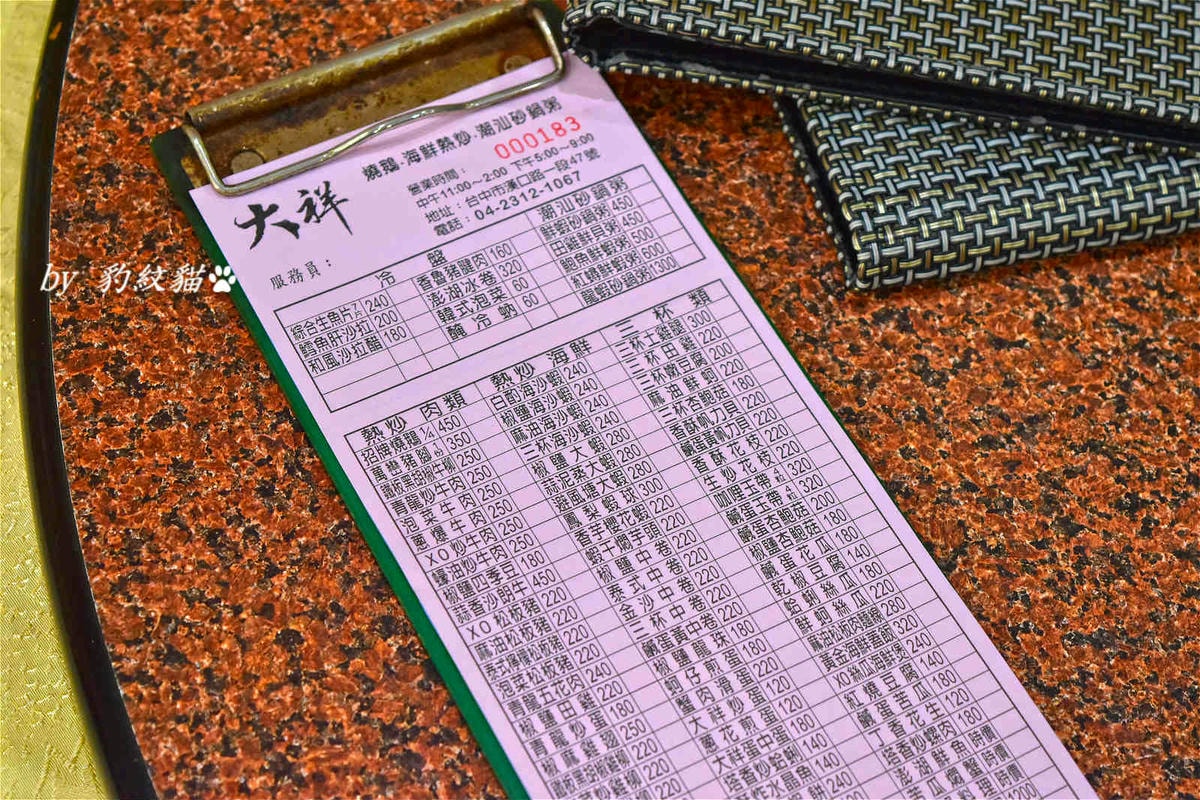 燒鵝.海鮮熱炒.潮汕砂鍋粥
000183
大祥
營業時間：
中午11:00～2:00 下午5:00～9:00
地址：台中市漢口路一段47號
電話：04-2312-1067
服務員：
by 豹紋貓
冷盤
綜合生魚片7片 240
鱈魚肝沙拉 200
和風沙拉醋 180
香魯豬腿肉 160
澎湖冰卷 320
韓式泡菜 60
醃冷蜆 60
潮汕砂鍋粥
鮮蝦砂鍋粥 450
田雞鮮貝粥 450
鮑魚鮮蝦粥 500
紅蟳鮮蝦粥 600
龍蝦砂鍋粥 1300
熱炒肉類
招牌燒鵝1/4 450
萬巒豬腳 350
鐵板黑胡椒牛柳 250
青龍炒牛肉 250
泡菜牛肉 250
蔥爆牛肉 250
XO炒牛肉 250
蠔油炒牛肉 250
椒鹽四季豆 180
蒜香沙朗牛 450
XO松板豬 220
麻油松板豬 220
泰式檸檬松板豬 220
泡菜松板豬 220
青龍五花肉 240
椒鹽田雞 220
青龍炒蛋 180
椒麻雞翅 250
鐵板黑胡椒雞柳 220
熱炒海鮮
白灼海沙蝦 240
椒鹽海沙蝦 240
麻油海沙蝦 240
三杯海沙蝦 240
椒鹽大蝦 280
蒜泥蒸大蝦 280
避風塘大蝦 280
鳳梨蝦球 300
香芋櫻花蝦 220
蝦干燜芋頭 220
椒鹽中卷 220
泰式中卷 220
金沙中卷 220
三杯中卷 220
鹹蛋黃中卷 220
椒鹽龍珠 180
蚵仔煎蛋 180
蟹肉滑蛋 220
大祥炒蛋 120
蔥花煎蛋 120
大祥蛋中蛋 180
塔香炒蛤蜊 140
三杯類
三杯土雞腿 300
三杯田雞 220
三杯嫩豆腐 200
麻油鮮蚵 200
三杯杏鮑菇 180
香酥帆力貝 220
鹹蛋黃帆力貝 220
香酥花枝 220
生炒花枝 220
咖哩玉帶4粒 320
鹹蛋玉帶4粒 320
鹹蛋杏鮑菇 200
椒鹽杏鮑菇 180
鹹蛋花瓜 180
乾椒豆腐 140
蛤蜊絲瓜 180
鮮蚵絲瓜 220
麻油松板肉麵線 280
黃金海鮮煲 320
XO絲瓜海鮮粥 240
紅燒豆腐 140
鹹蛋苦瓜 180
丁香花生 120
塔香炒螺肉 180
澎湖鮮魚 時價